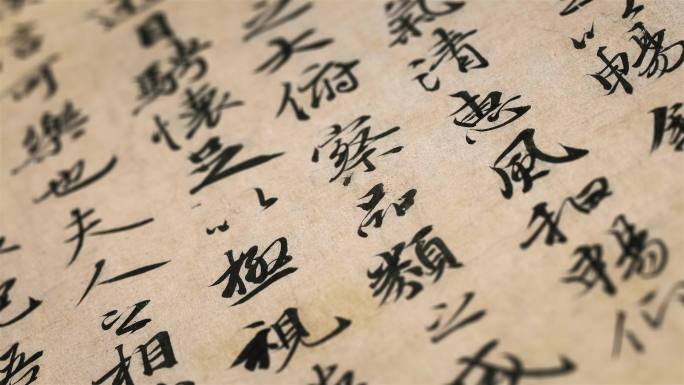 以暢
氣清惠風和暢仰
之大俯察品類之盛
目騁懷足以極視
可樂也夫人之相